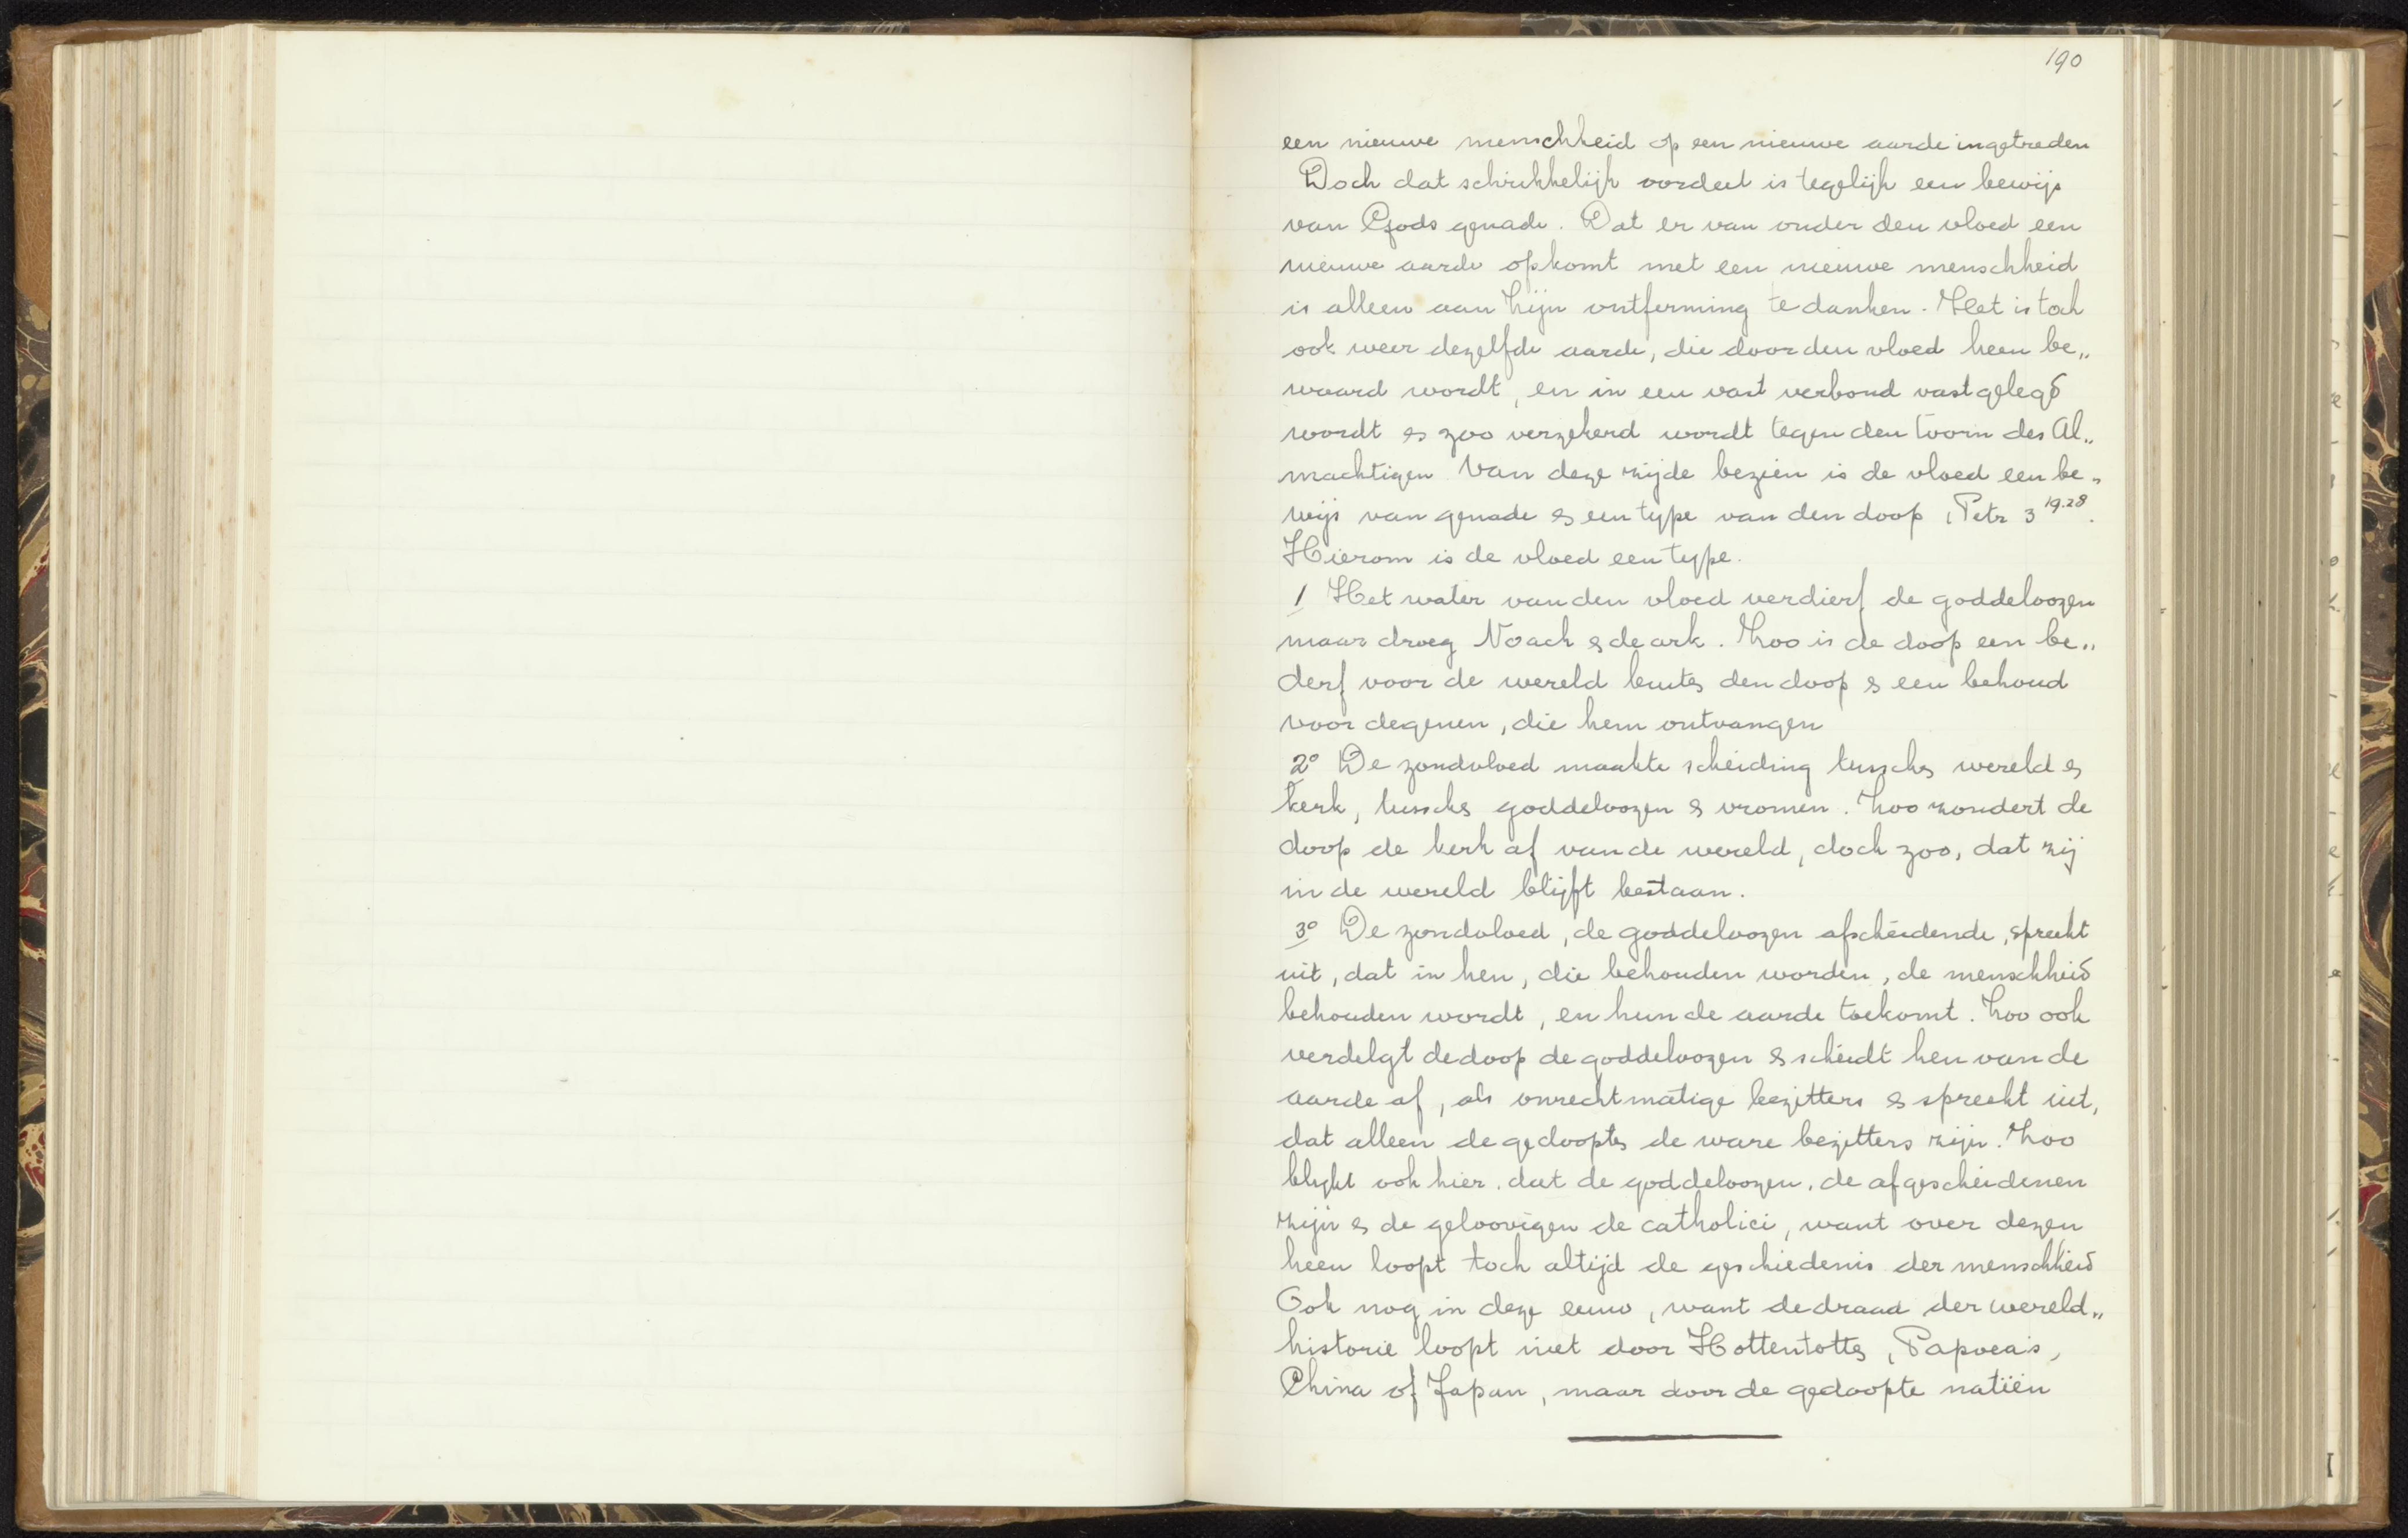 190
een nieuwe menschheid op een nieuwe aarde ingetreden
Doch dat schrikkelijk oordeel is tegelijk een bewijs
van Gods genade. Dat er van onder den vloed een
nieuwe aarde opkomt met een nieuwe menschheid
is alleen aan Zijn ontferming te danken. Het is toch
ook weer dezelfde aarde, die door den vloed heen be„
waard wordt, en in een vast verbond vastgelegd
wordt & zoo verzekerd wordt tegen den toorn des Al„
machtigen Van deze zijde bezien is de vloed een be„
wijs van genade & een type van den doop 1 Petr 3 19.28.
Hierom is de vloed een type.
1 Het water van den vloed verdierf de goddeloozen
maar droeg Noach & de ark. Zoo is de doop een be„
derf voor de wereld buiten den doop & een behoud
voor degenen, die hem ontvangen
2° De zondvloed maakte scheiding tusschen wereld &
kerk, tusschen goddeloozen & vromen. Zoo zondert de
doop de kerk af van de wereld, doch zoo, dat zij
in de wereld blijft bestaan.
3° De zondvloed, de goddeloozen afscheidende, spreekt
uit, dat in hen, die behouden worden, de menschheid
behouden wordt, en hun de aarde toekomt. Zoo ook
verdelgt de doop de goddeloozen & scheidt hen van de
aarde af, als onrechtmatige bezitters & spreekt uit,
dat alleen de gedoopten de ware bezitters zijn. Zoo
blijkt ook hier, dat de goddeloozen, de afgescheidenen
zijn & de geloovigen de catholici, want over dezen
heen loopt toch altijd de geschiedenis der menschheid
Ook nog in deze eeuw, want de draad der wereld„
historie loopt niet door Hottentotten, Papoea's,
China of Japan, maar door de gedoopte natiën